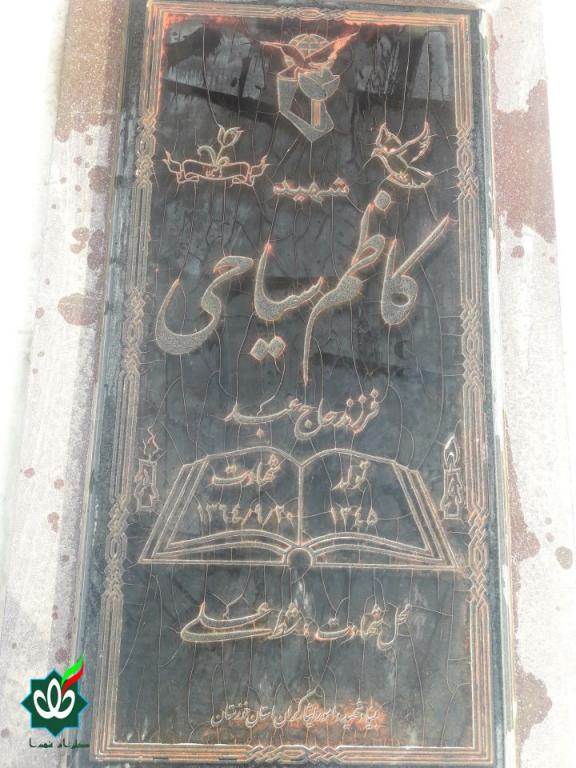 شهید
کاظم سیاحی
فرزند حاج عبد
تولد
۱۳۴۵
شهادت
۱۳۶۴/۹/۲۰
محل شهادت: شط علی
بنیاد شهید و امور ایثارگران استان خوزستان